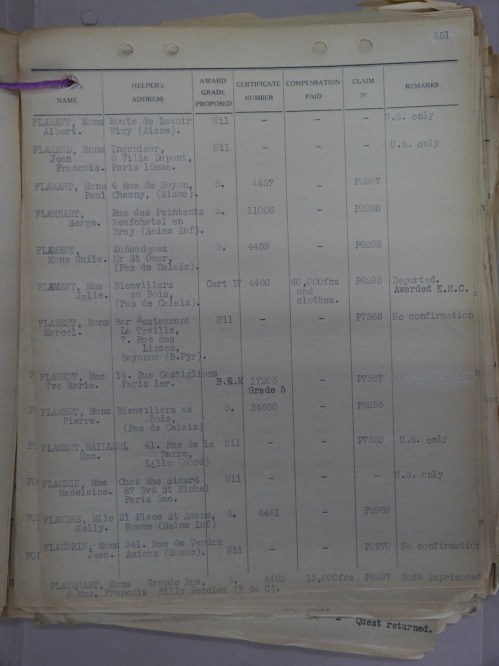 551
NAME HELPER's ADDRESS AWARD GRADE PROPOSED CERTIFICATE NUMBER COMPENSATION PAID CLAIM Nº REMARKS
FLAMANT, Mons Route de Lavoir Nil - - U.S. only
Albert. Winy (Aisne).
FLAMAND, Mons Ingenieur, Nil - - U.S. only
Jean 5 Villa Dupont,
Francois. Paris 16eme.
FLAMANT, Mons 4 Rue de Noyon, 5. 4457 - P2967
Paul Chauny, (Aisne).
Rue des 5. 11006 - P2968
Serge. Neufchatel en
Bray (Seine Inf)
FLAMENT, 5. 4459 - P6295
Mons Emile. Nr St Omer,
(Pas de Calais).
FLAMENT, Mme Bienvillers Cert 17 4460 40,000fcs P6295 Deported.
Julie. au Bois, and Awarded K.M.C.
(Pas de Calais). clothes.
FLAMENT, Mons Bar Restaurant Nil - - P7568 No confirmation
Marcel. La Treille,
7. Rue des
Lisses,
Bayonne (B.Pyr).
FLAMENT, Mme 14. Rue Castiglione B.E.M 17295 - P7567
Yve Marie. Paris 1er. Grade 5
FLAMENT, Mons Bienvillers as 5. 34650 - P6295
Pierre. Bois,
(Pas de Calais)
FLAMENT, BAILLEUL 41. Rue de la Nil - - P7550 U.S. only
Mme. Barre,
Lille (Nord)
FLANDIN, Mme Chez Mme Sicard Nil - - U.S. only
Madeleine. 87 Bvd St Michel
Paris 5me.
FLANDRE, Mlle 21 Place St Amand, 5. 4461 - P2969
Nelly. Rouen (Seine Inf)
FLANDRIN, Mons 241. Rue de Verdun Nil - - P2970 No confirmation
Jean. Amiens (Somme).
Mons Grande Rue, 5. 4462 15,000fcs P6297 Both imprisoned
& Mme. Francois Billy Berclos (P de C).
Quest returned.